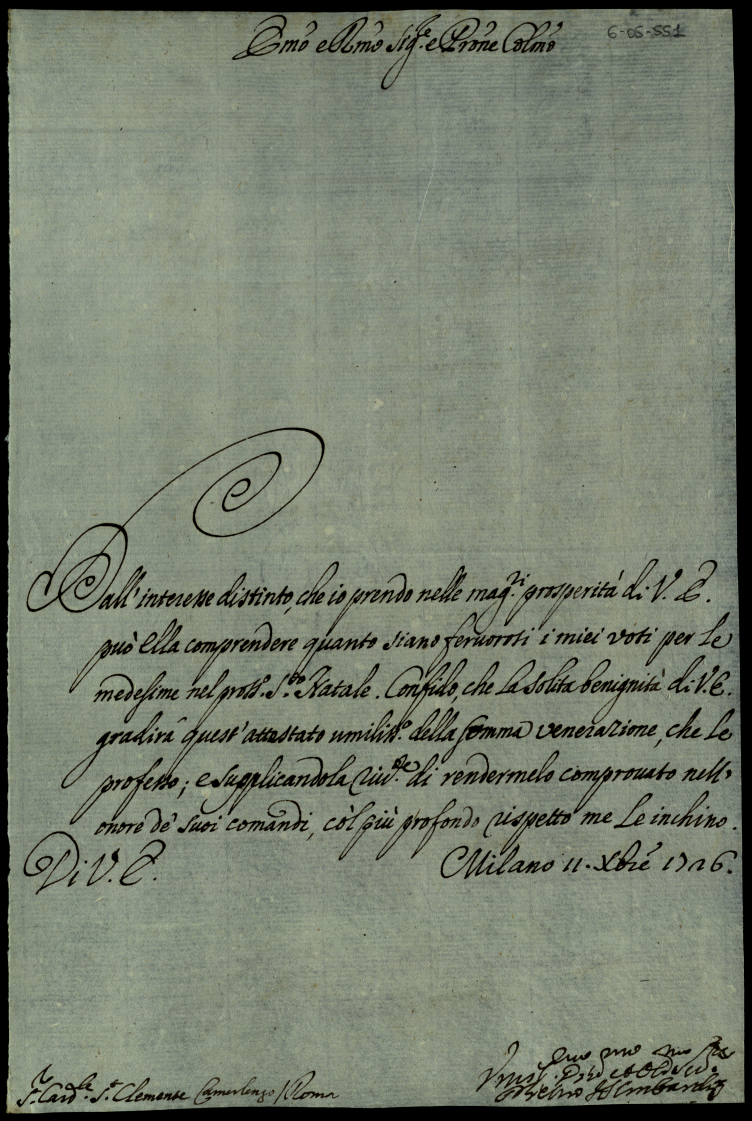 Emo e Rmo Sigr.e e Prone Colmo
6-05-551
Dall'interesse distinto, che io prendo nelle mag.ri prosperità di V. E.
può Ella comprendere quanto siano fervorosi i miei voti per le
medesime nel pross.o S.to Natale. Confido, che la solita benignità di V. E.
gradirà quest'attestato umiliss.o della somma venerazione, che Le
professo; e supplicandola riv.te di rendermelo comprovato nell'
onore de' suoi comandi, còl più profondo rispetto me Le inchino.
Di V. E.
Milano 11. Xbre 1726.
S.r Card.le S. Clemente Camerlengo / Roma